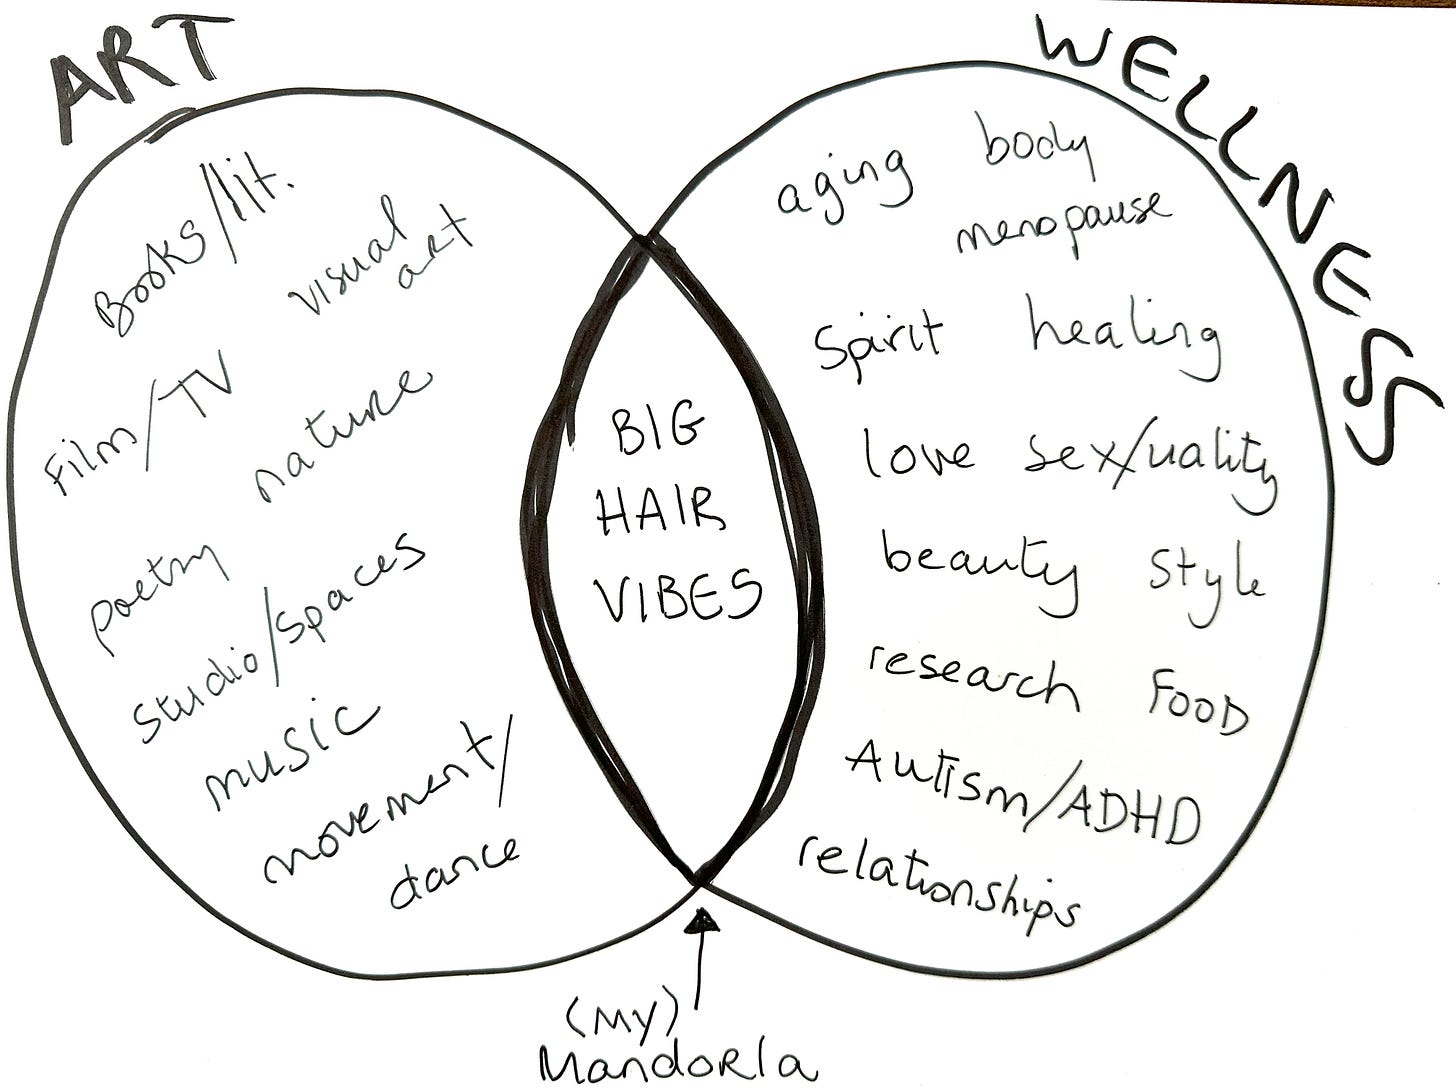 ART
Books/lit.
visual
art
Film/TV
nature
poetry
studio/spaces
music
movement/
dance
BIG
HAIR
VIBES
WELLNESS
aging body
menopause
Spirit healing
love sex/uality
beauty style
research FOOD
Autism/ADHD
relationships
(MY)
Mandorla